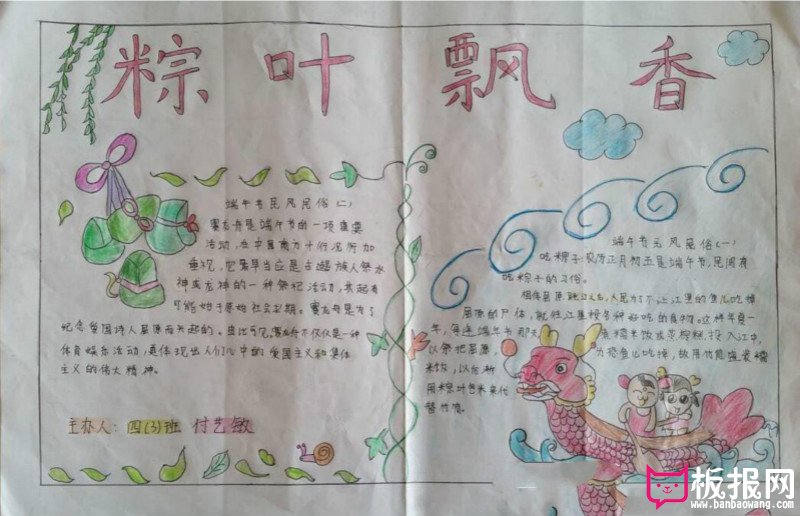 粽叶飘香
端午节民风民俗(二)
赛龙舟是端午节的一项重要
活动,在中国南方十分流行
它最早当应是古越族人祭水
神或龙神的一种祭祀活动,其起有
可能始于原始社会末期。赛龙舟是为了
纪念爱国诗人屈原而兴起的。由此可见,赛龙舟不仅仅是一种
体育娱乐活动,更体现出人们心中的爱国主义和集体
主义的伟大精神。
主办人:四(3)班 付艺敏
端午节民风民俗(一)
吃粽子:农历正月初五是端午节,民间有
吃粽子的习俗。
相传屈原跳江以后,人民为了不让江里的鱼儿吃掉
屈原的尸体,就往江里投各种好吃的食物。这样年复一
年,每逢端午节那天
煮糯米饭或蒸粽糕,投入江中
以祭祀屈原,
为恐鱼儿吃掉,故用竹筒盛装糯
米饭,以后渐
用粽叶包米来代
替竹筒。
板报网
www.banbaowang.com